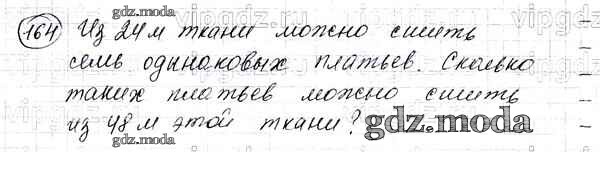 164 Из 24 м ткани можно сшить
семь одинаковых платьев. Сколько
таких платьев можно сшить
из 48 м этой ткани?
gdz.moda
gdz.moda
gdz.moda